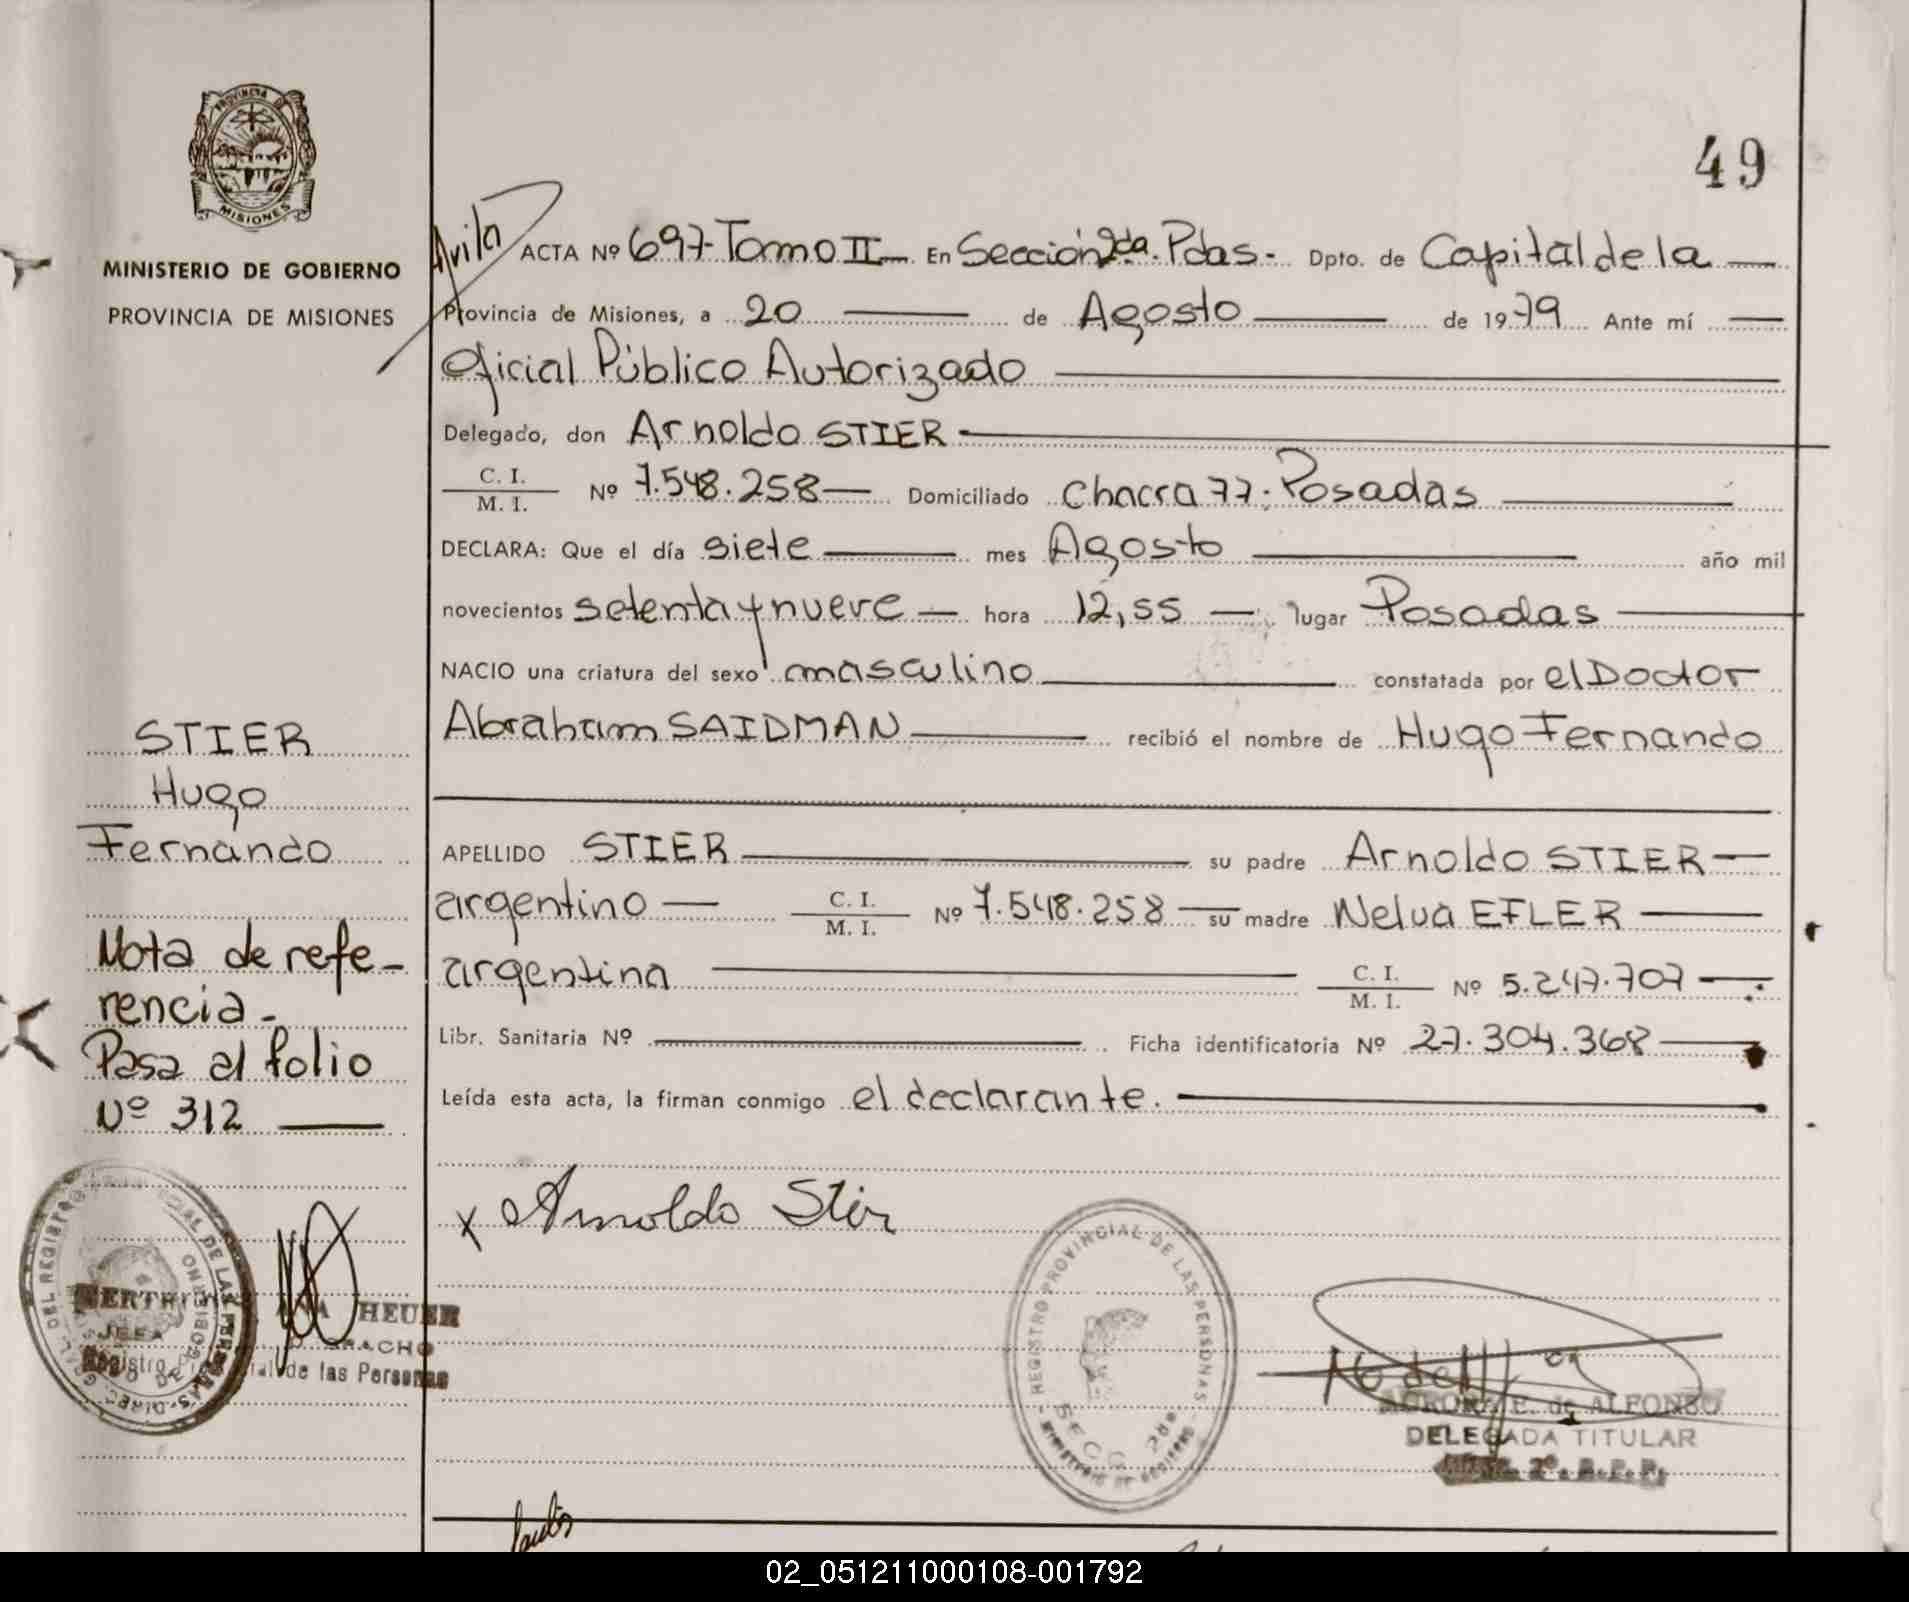 49
PROVINCIA DE
MISIONES
MINISTERIO DE GOBIERNO
PROVINCIA DE MISIONES
Avila
ACTA Nº 697-Tomo II— En Sección 2da. Pdas.- Dpto. de Capital de la —
Provincia de Misiones, a 20 — de Agosto — de 1979 Ante mí —
Oficial Público Autorizado —
Delegado, don Arnoldo STIER —
C. I.
M. I. Nº 7.548.258— Domiciliado Chacra 77. Posadas —
DECLARA: Que el día siete — mes Agosto — año mil
novecientos setenta y nueve — hora 12,55 — lugar Posadas —
NACIO una criatura del sexo masculino — constatada por el Doctor
Abraham SAIDMAN — recibió el nombre de Hugo Fernando
APELLIDO STIER — su padre Arnoldo STIER —
argentino — C. I.
M. I. Nº 7.548.258 — su madre Nelva EFLER —
argentina — C. I.
M. I. Nº 5.247.707 —
Libr. Sanitaria Nº — Ficha identificatoria Nº 27.304.368 —
Leída esta acta, la firman conmigo el declarante. —
STIER
Hugo
Fernando
Nota de refe-
rencia-
Pasa al folio
Nº 312 —
x Arnoldo Stier
HEUER
JEFA
Registro de las Personas
REGISTRO PROVINCIAL DE LAS PERSONAS
SECC. 2da
MINISTERIO DE GOBIERNO
E. de ALFONSO
DELEGADA TITULAR
02_051211000108-001792